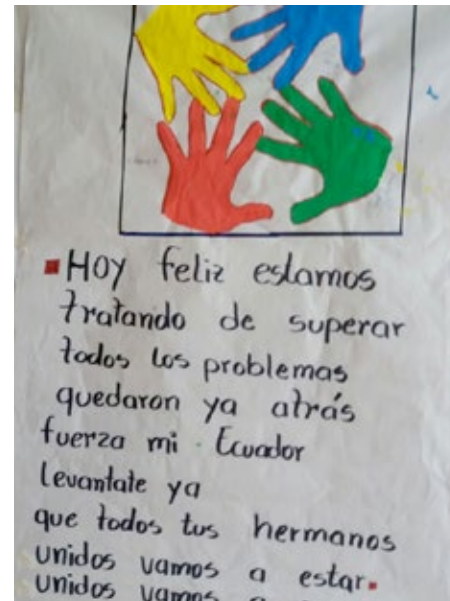 HOY feliz estamos
tratando de superar
todos los problemas
quedaron ya atrás
fuerza mi Ecuador
levantate ya
que todos tus hermanos
unidos vamos a estar.
unidos vamos a